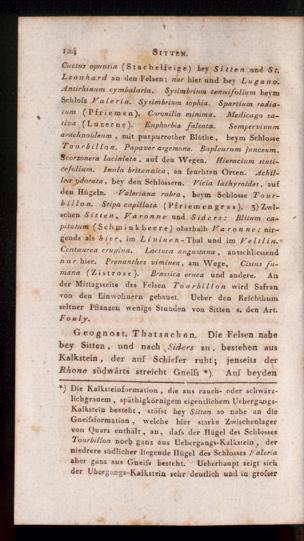 124 SITTEN.
Cactus opuntia (Stachelfeige) bey Sitten und St.
Leonhard an den Felsen; nur hier und bey Lugano.
Antirhinum cymbalaria. Sysimbrium tenuifolium beym
Schloſs Valeria. Sysimbrium sophia. Spartium radia-
tum (Pfriemen). Coronilla minima. Medicago sa-
tiva (Luzerne). Euphorbia falcata. Sempervivum
arachnoideum, mit purpurrother Blüthe, beym Schlosse
Tourbillon. Papaver argemone. Bupleurum junceum.
Scorzonera laciniata, auf den Wegen. Hieracium stati-
cefolium. Inula britannica, an feuchten Orten. Achil-
lea odorata, bey den Schlössern. Vicia lathyroides, auf
den Hügeln. Valeriana rubra, beym Schlosse Tour-
billon. Stipa capillata (Pfriemengress). 5) Zwi-
schen Sitten, Varonne und Siders: Blitum ca-
pitatum (Schminkbeere) oberhalb Varonne; nir-
gends als hier, im Livinen-Thal und im Veltlin.
Centaurea crupina. Lactuca augustana, ausschliessend
nur hier. Prenanthes viminea, am Wege. Cistus fu-
mana (Zistrose). Brassica eruca und andere. An
der Mittagsseite des Felsen Tourbillon wird Safran
von den Einwohnern gebauet. Ueber den Reichthum
seltner Pflanzen wenige Stunden von Sitten s. den Art.
Fouly.
Geognost. Thatsachen. Die Felsen nahe
bey Sitten, und nach Siders zu, bestehen aus
Kalkstein, der auf Schiefer ruht; jenseits der
Rhone südwärts streicht Gneiſs *). Auf beyden
*) Die Kalksteinformation, die aus rauch- oder schwärz-
lichgrauem, späthigkörnigem eigentlichem Uebergangs-
Kalkstein besteht, stöſst bey Sitten so nahe an die
Gneiſsformation, welche hier starke Zwischenlager
von Quarz enthält, an, daſs der Hügel des Schlosses
Tourbillon noch ganz aus Uebergangs-Kalkstein, der
niedrere südlicher liegende Hügel des Schlosses Faleria
aber ganz aus Gneiſs besteht. Ueberhaupt zeigt sich
der Uebergangs-Kalkstein sehr deutlich und in groſser